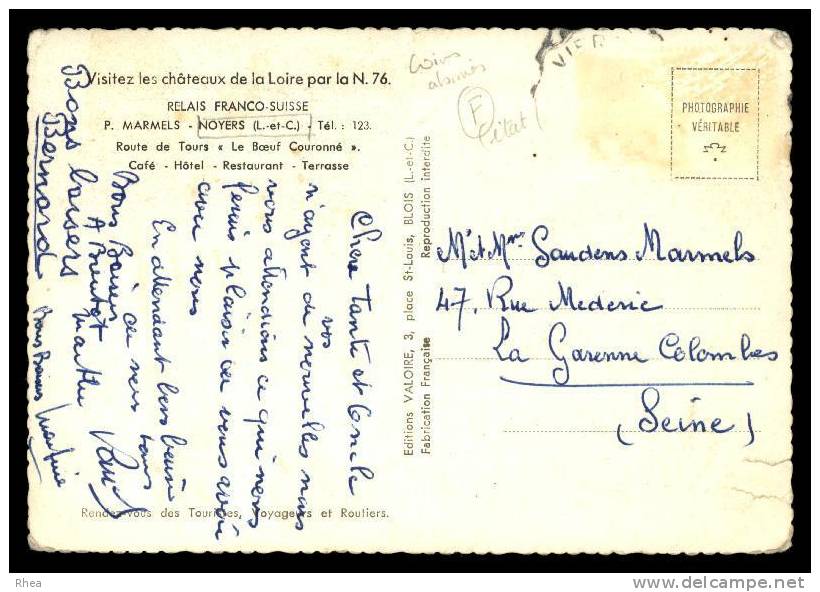 Visitez les châteaux de la Loire par la N. 76.
RELAIS FRANCO-SUISSE
P. MARMELS - NOYERS (L.-et-C.) - Tél. : 123
Route de Tours « Le Bœuf Couronné ».
Café - Hôtel - Restaurant - Terrasse
Chere Tante et Oncle
n'ayant de vos nouvelles nous
vous attendions ce qui nous
ferais plaisir de vous avoir
avec nous
En attendant
Bons Baisers de nous tous
A Bientot
Marthe
Bons baisers
Bernard
Bons Baisers
Rendez-vous des Touristes, Voyageurs et Routiers.
Editions VALOIRE, 3, place St-Louis, BLOIS (L.-et-C.)
Fabrication Française
Reproduction interdite
Coins
abimés
F
état
VIER
PHOTOGRAPHIE
VÉRITABLE
Mr et Mme Gaudens Marmels
47, Rue Mederic
La Garenne Colombes
(Seine)
Rhea
delcampe.net